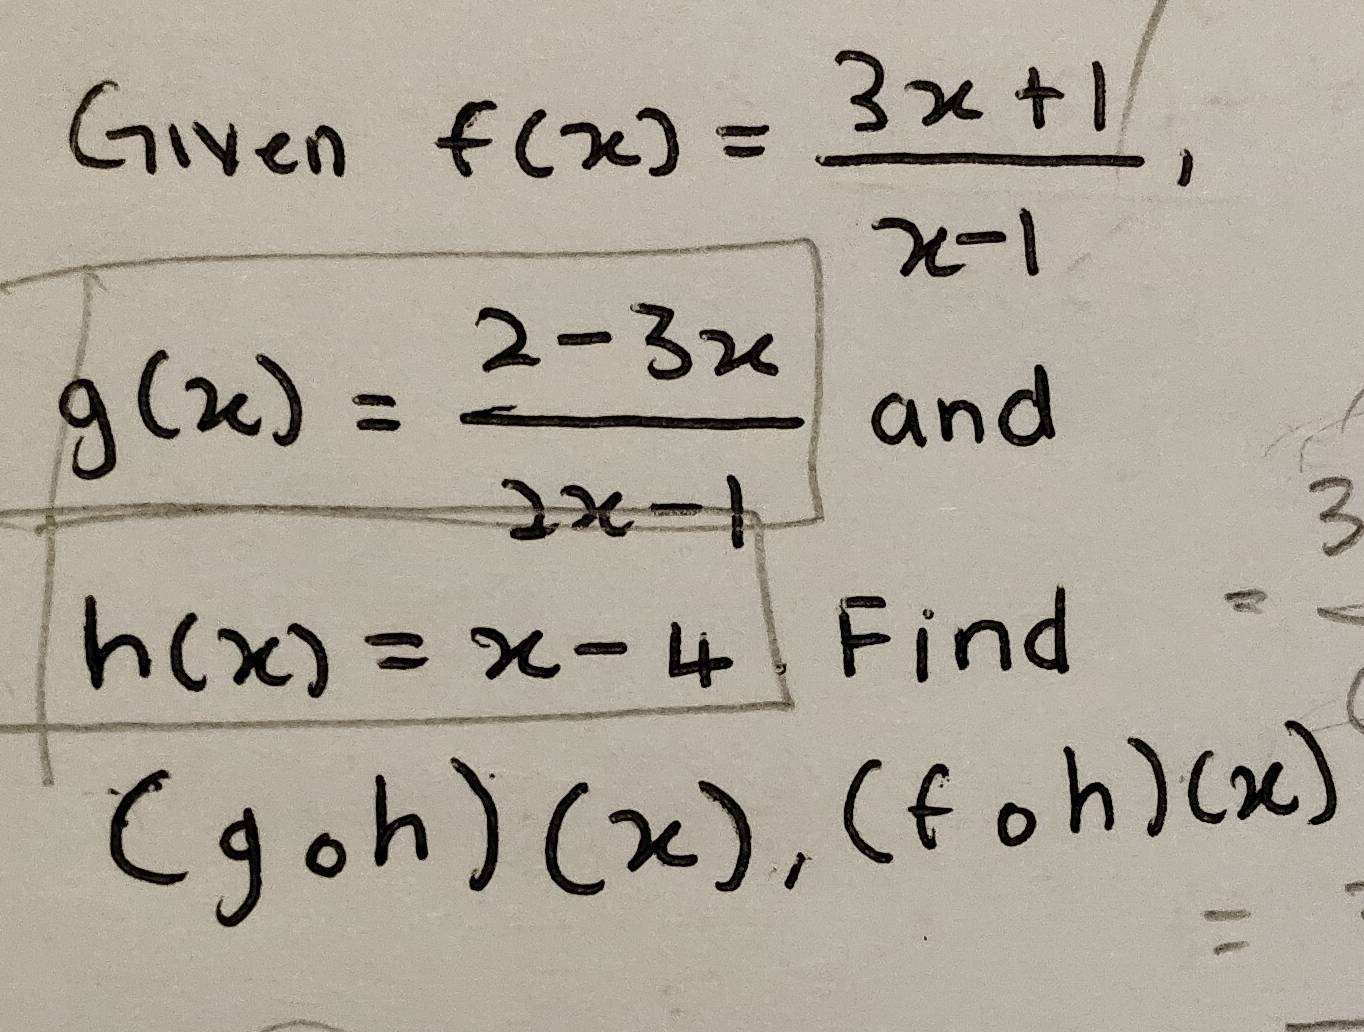 Given f(x) = 3x+1 / x-1 ,
g(x) = 2-3x / 2x-1 and
h(x) = x-4. Find
(goh)(x), (foh)(x)
= 3
=